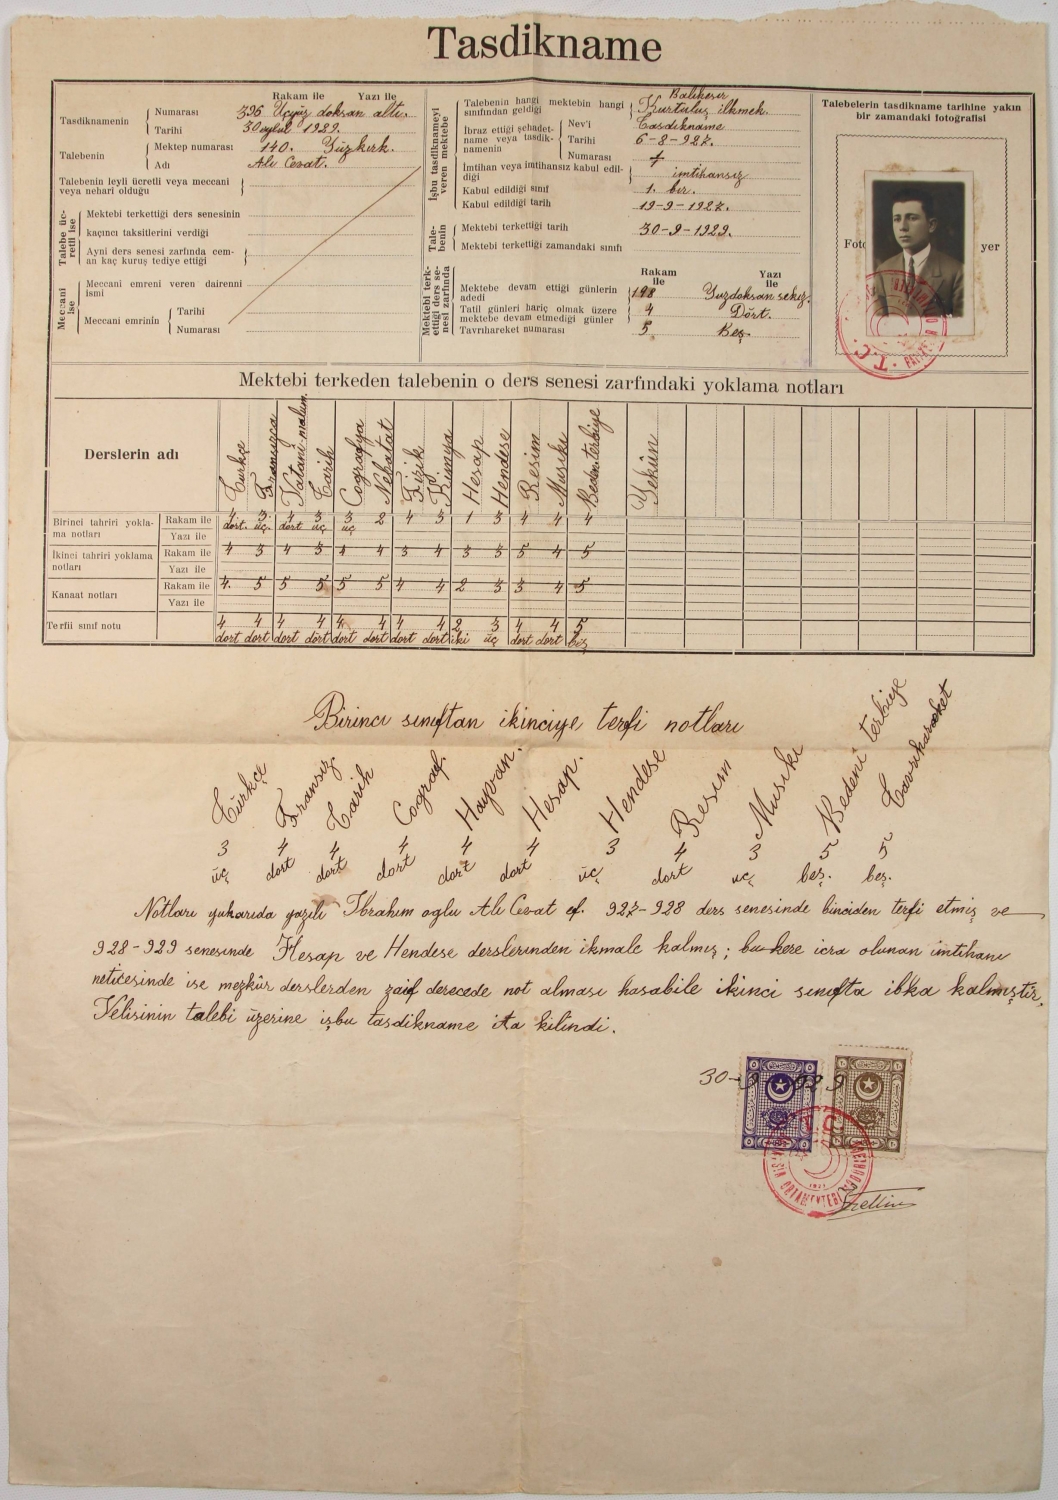 Tasdikname
Rakam ile Yazi ile
Tasdiknamenin
Numarası 396 Üçyüz doksan altı.
Tarihi 30 eylul 1929.
Talebenin
Mektep numarası 140. Yüzkırk.
Adı Ali Cevat.
Talebenin leyli ücretli veya meccani
veya nehari olduğu
Talebe üc-
retli ise
Mektebi terkettiği ders senesinin
kaçıncı taksitlerini verdiği
Ayni ders senesi zarfında cem-
an kaç kuruş tediye ettiği
Meccani
ise
Meccani emreni veren dairenni
ismi
Meccani emrinin
Tarihi
Numarası
İşbu tasdiknameyi
veren mektebe
Talebenin hangi mektebin hangi
sınıfından geldiği
Balıkesir
Kurtuluş ilkmek.
İbraz ettiği şehadet-
name veya tasdik-
namenin
Nev'i Tasdikname
Tarihi 6-8-927.
Numarası
İmtihan veya imtihansız kabul edil-
diği imtihansız
Kabul edildiği sınıf 1. bir.
Kabul edildiği tarih 19-9-1927.
Tale-
benin
Mektebi terkettiği tarih 30-9-1929.
Mektebi terkettiği zamandaki sınıfı
Mektebi terk-
ettiği ders se-
nesi zarfında
Rakam ile Yazi ile
Mektebe devam ettiği günlerin
adedi 198 Yuzdoksan sekiz.
Tatil günleri hariç olmak üzere
mektebe devam etmediği günler 4 Dört.
Tavrıhareket numarası 5 Beş.
Talebelerin tasdikname tarihine yakın
bir zamandaki fotoğrafisi
Foto yer
T.C.
Mektebi terkeden talebenin o ders senesi zarfındaki yoklama notları
Derslerin adı Türkçe Fransızca Vatani malum. Tarih Cografya Nebatat Fizik Kimya Hesap Hendese Resim Musiki Bedenterbiye Yekûn
Birinci tahriri yokla-
ma notları
Rakam ile 4 3 4 3 3 2 4 3 1 3 4 4 4
Yazi ile dört. üç. dört üç üç
İkinci tahriri yoklama
notları
Rakam ile 4 3 4 3 4 4 3 4 3 3 5 4 5
Yazi ile
Kanaat notları
Rakam ile 4. 5 5 5 5 5 4 4 2 3 3 4 5
Yazi ile
Terfii sınıf notu 4 4 4 4 4 4 4 4 2 3 4 4 5
dört dört dört dört dört dört dört dört iki üç dört dört beş
Birinci sınıftan ikinciye terfi notları
Türkçe Fransız Tarih Cograf. Hayvan. Hesap. Hendese Resim Musiki Bedeni terbiye Tavrıhareket
3 4 4 4 4 4 3 4 3 5 5
üç dört dört dört dört dört üç dört üç beş. beş.
Notları yukarıda yazılı İbrahim oglu Ali Cevat ef. 927-928 ders senesinde birinciden terfi etmiş ve
928-929 senesinde Hesap ve Hendese derslerinden ikmale kalmış; bu kere icra olunan imtihanı
neticesinde ise mezkûr derslerden zaif derecede not alması hasabile ikinci sınıfta ibka kalmıştır.
Velisinin talebi üzerine işbu tasdikname ita kilindi.
30-9-929
T.C.